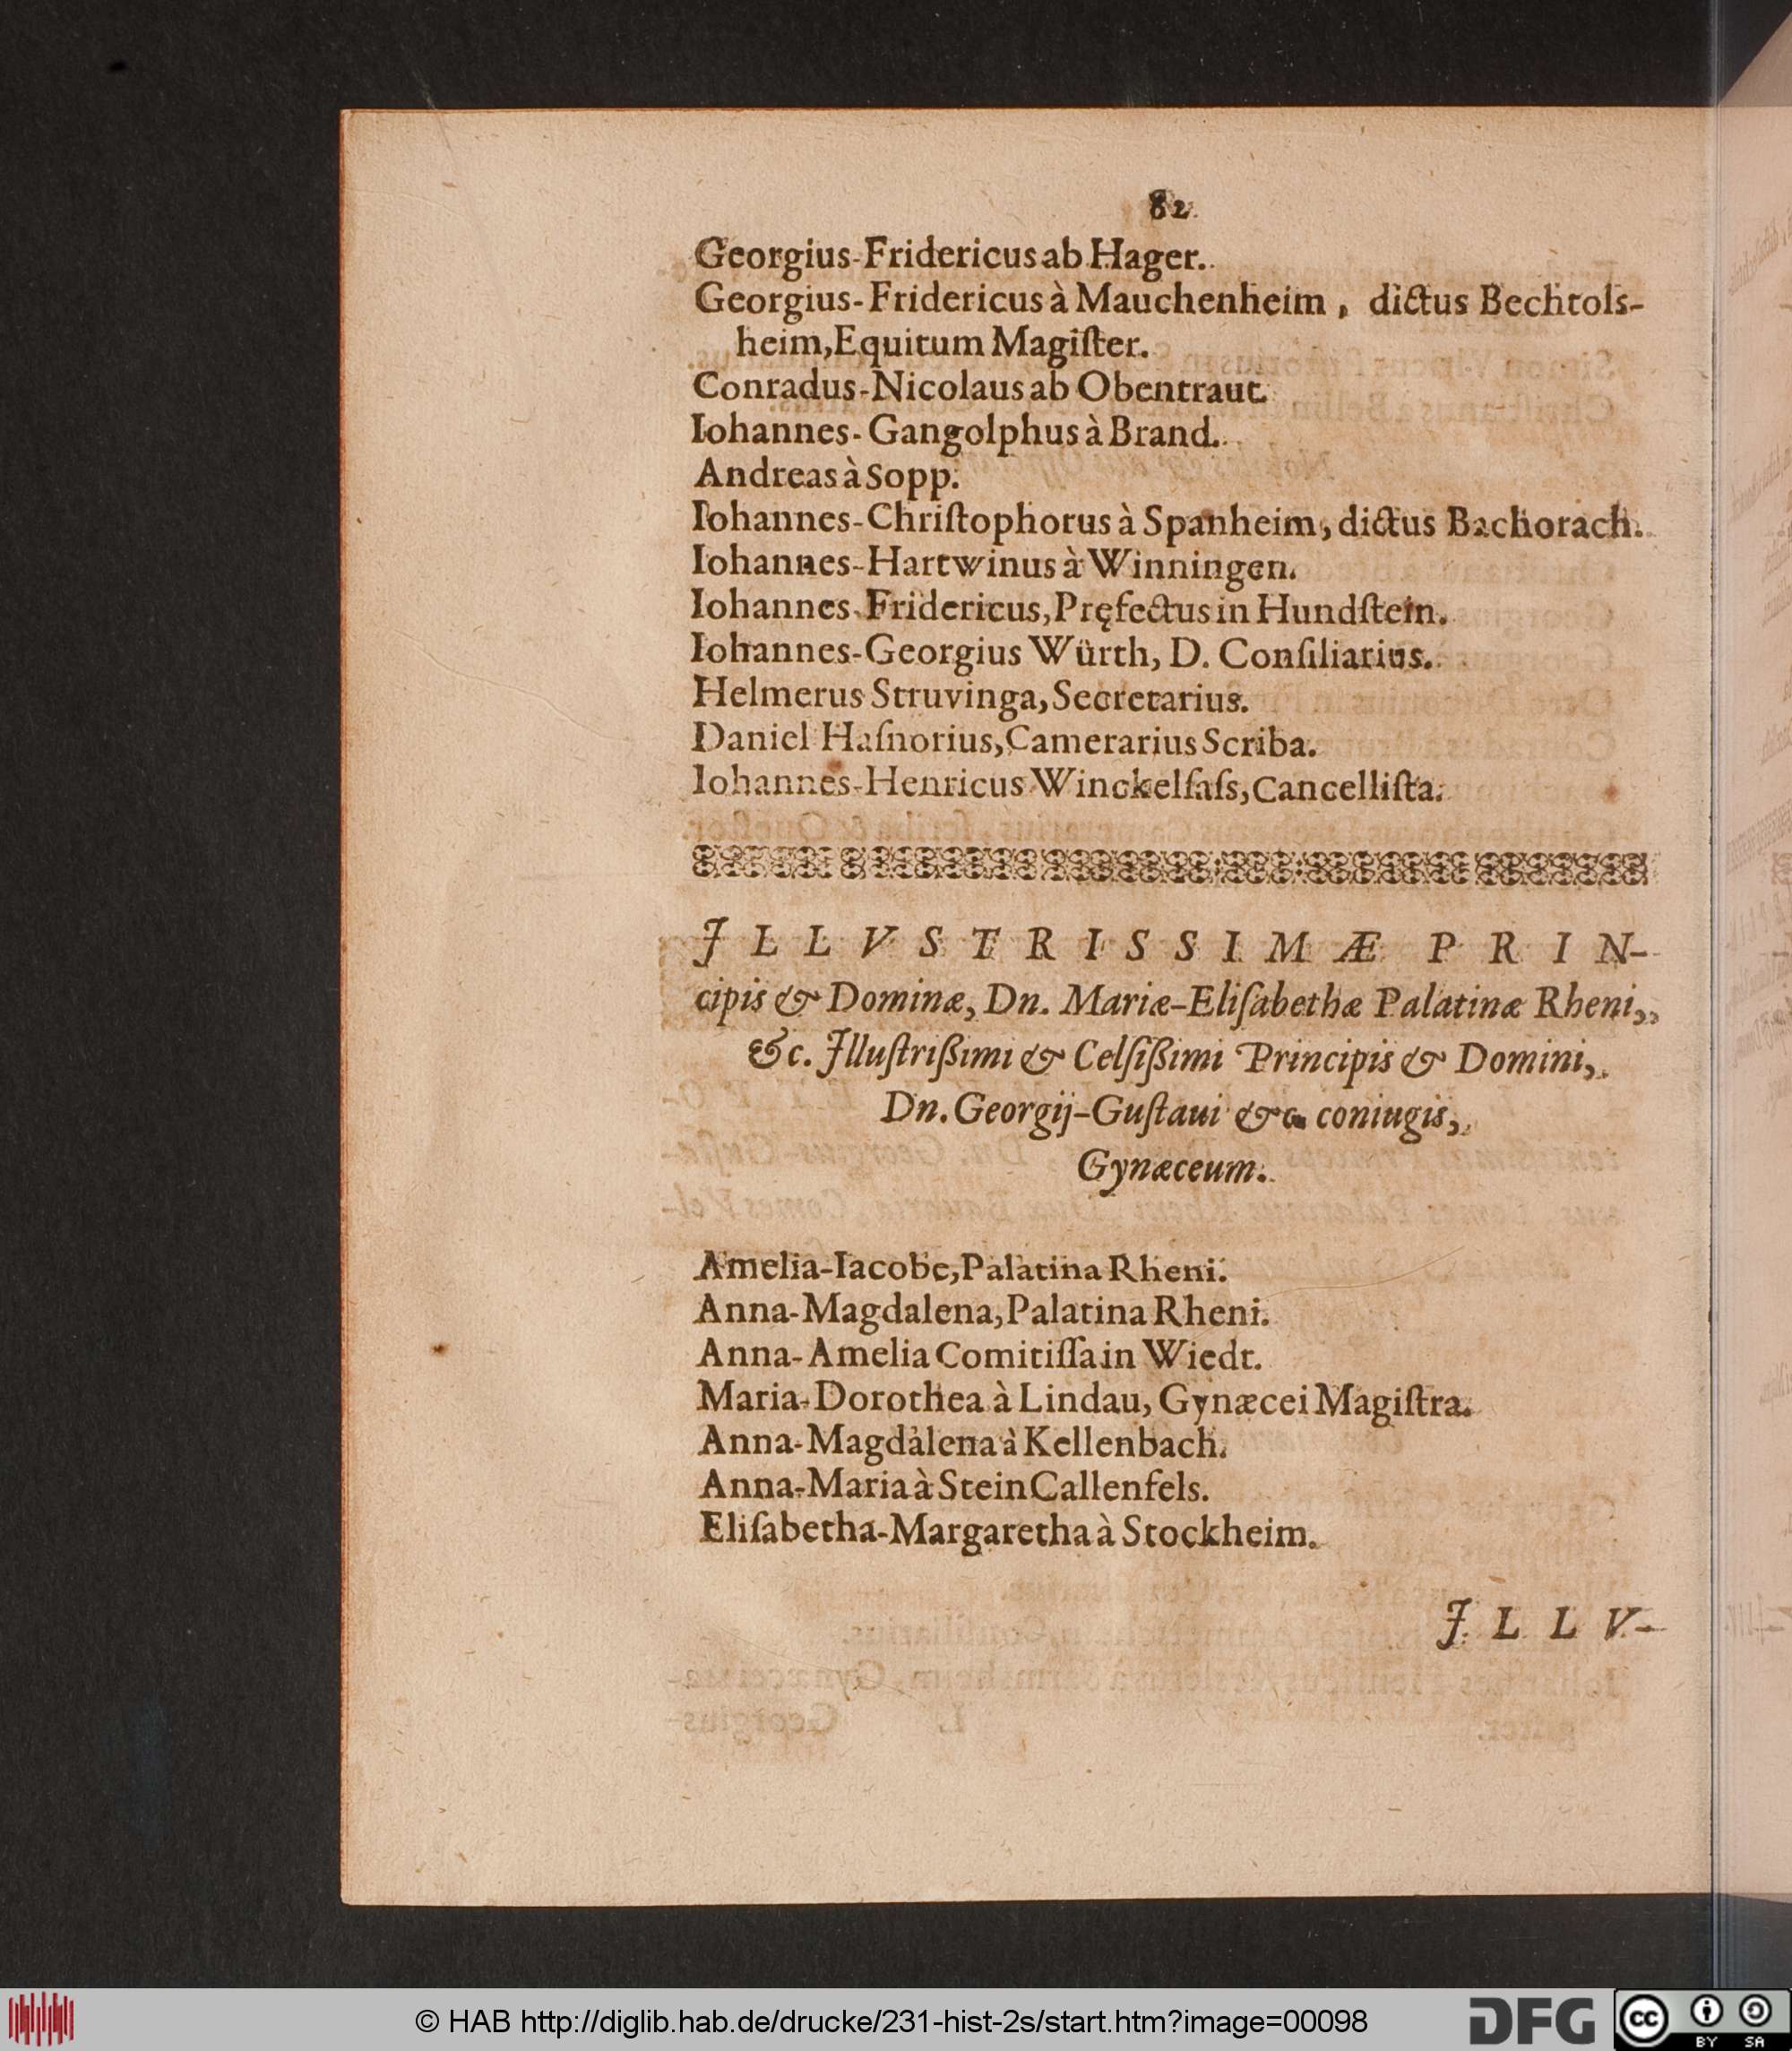 82
Georgius-Fridericus ab Hager.
Georgius-Fridericus à Mauchenheim, dictus Bechtols-
heim, Equitum Magiſter.
Conradus-Nicolaus ab Obentraut.
Iohannes-Gangolphus à Brand.
Andreas à Sopp.
Iohannes-Chriſtophorus à Spanheim, dictus Bachorach.
Iohannes-Hartwinus à Winningen.
Iohannes-Fridericus, Pręfectus in Hundſtein.
Iohannes-Georgius Würth, D. Conſiliarius.
Helmerus Struvinga, Secretarius.
Daniel Haſnorius, Camerarius Scriba.
Iohannes-Henricus Winckelſaſs, Cancelliſta.
ILLVSTRISSIMÆ PRIN-
cipis & Dominæ, Dn. Mariæ-Eliſabethæ Palatinæ Rheni,
&c. Illuſtrißimi & Celſißimi Principis & Domini,
Dn. Georgij-Guſtaui &c. coniugis,
Gynæceum.
Amelia-Iacobe, Palatina Rheni.
Anna-Magdalena, Palatina Rheni.
Anna-Amelia Comitiſſa in Wiedt.
Maria-Dorothea à Lindau, Gynæcei Magiſtra.
Anna-Magdalena à Kellenbach.
Anna-Maria à Stein Callenfels.
Eliſabetha-Margaretha à Stockheim.
ILLV-
© HAB http://diglib.hab.de/drucke/231-hist-2s/start.htm?image=00098
DFG
cc
BY SA